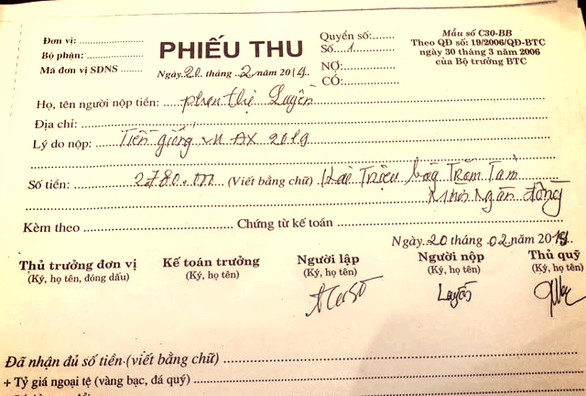 Đơn vị:
Bộ phận:
Mã đơn vị SDNS
PHIẾU THU
Ngày 20 tháng 2 năm 2019
Quyển số:
Số 1
NỢ:
CÓ:
Mẫu số C30-BB
Theo QĐ số: 19/2006/QĐ-BTC
ngày 30 tháng 3 năm 2006
của Bộ trưởng BTC
Họ, tên người nộp tiền: phan thị Luyến
Địa chỉ:
Lý do nộp: Tiền giống ĐX 2019
Số tiền: 2780.000 (Viết bằng chữ) Hai Triệu bảy Trăm Tám
Mươi Ngàn đồng
Kèm theo Chứng từ kế toán
Ngày 20 tháng 02 năm 2019
Thủ trưởng đơn vị Kế toán trưởng Người lập Người nộp Thủ quỹ
(Ký, họ tên, đóng dấu) (Ký, họ tên) (Ký, họ tên) (Ký, họ tên) (Ký, họ tên)
Luyến
Đã nhận đủ số tiền (viết bằng chữ)
+ Tỷ giá ngoại tệ (vàng bạc, đá quý)